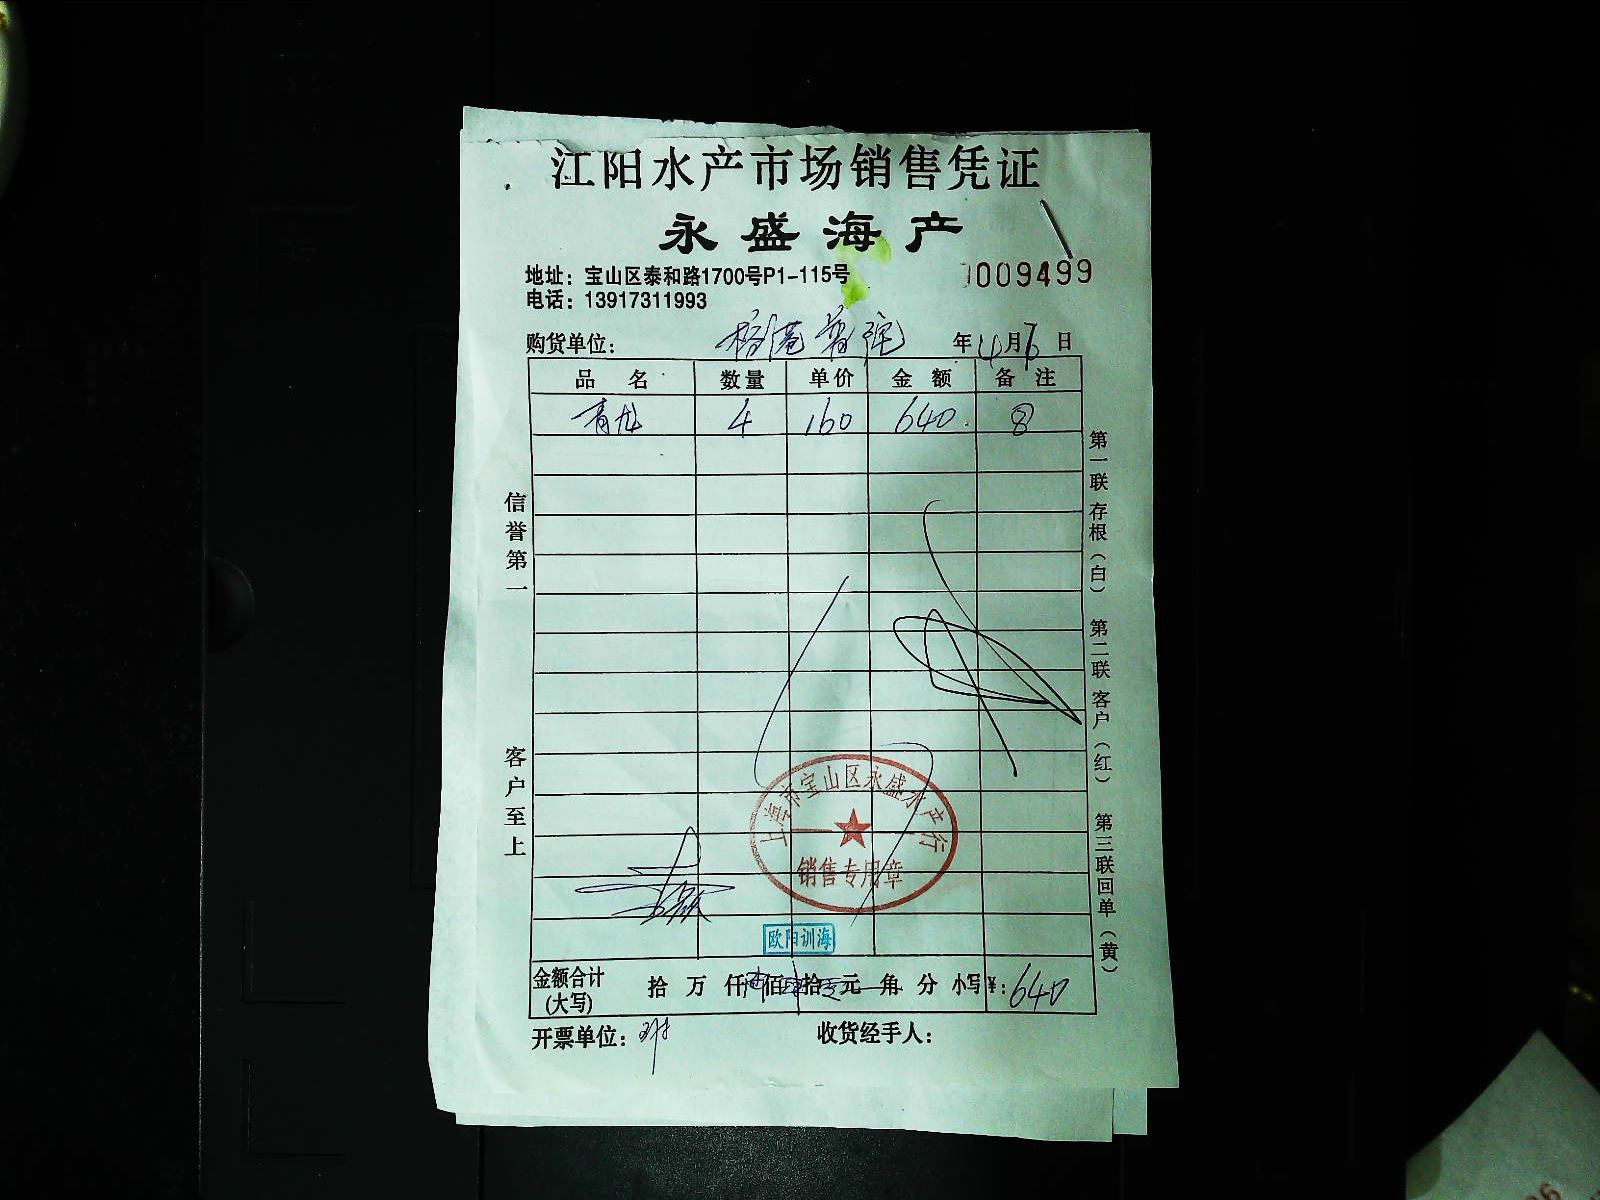 江阳水产市场销售凭证
永盛海产
地址：宝山区泰和路1700号P1-115号
009499
电话：13917311993
购货单位： 年4月6日
品名 数量 单价 金额 备注
青龙 4 160 640. 8
信誉第一
客户至上
第一联 存根（白） 第二联 客户（红） 第三联 回单（黄）
上海市宝山区永盛水产行
销售专用章
欧阳训海
金额合计(大写) 拾 万 仟 陆佰 肆拾 元 角 分 小写¥：640
开票单位： 收货经手人：